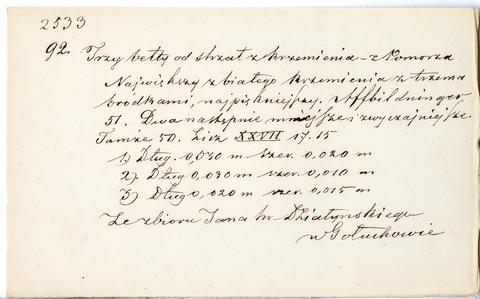 2533
92. Trzy bełty od strzał z krzemienia – z Pomorza.
Największy z białego krzemienia z trzema
bródkami, najpiękniejszy. Affbildninger
51. Dwa następnie mniejsze i zwyczajniejsze.
Tamże 50. Lisz XXVII 17.15
1) Dług. 0,030 m szer. 0,020 m
2) Dług 0,030 m szer. 0,010 m
3) Dług 0,020 m szer. 0,015 m
Ze zbioru Jana hr. Działyńskiego
w Gołuchowie